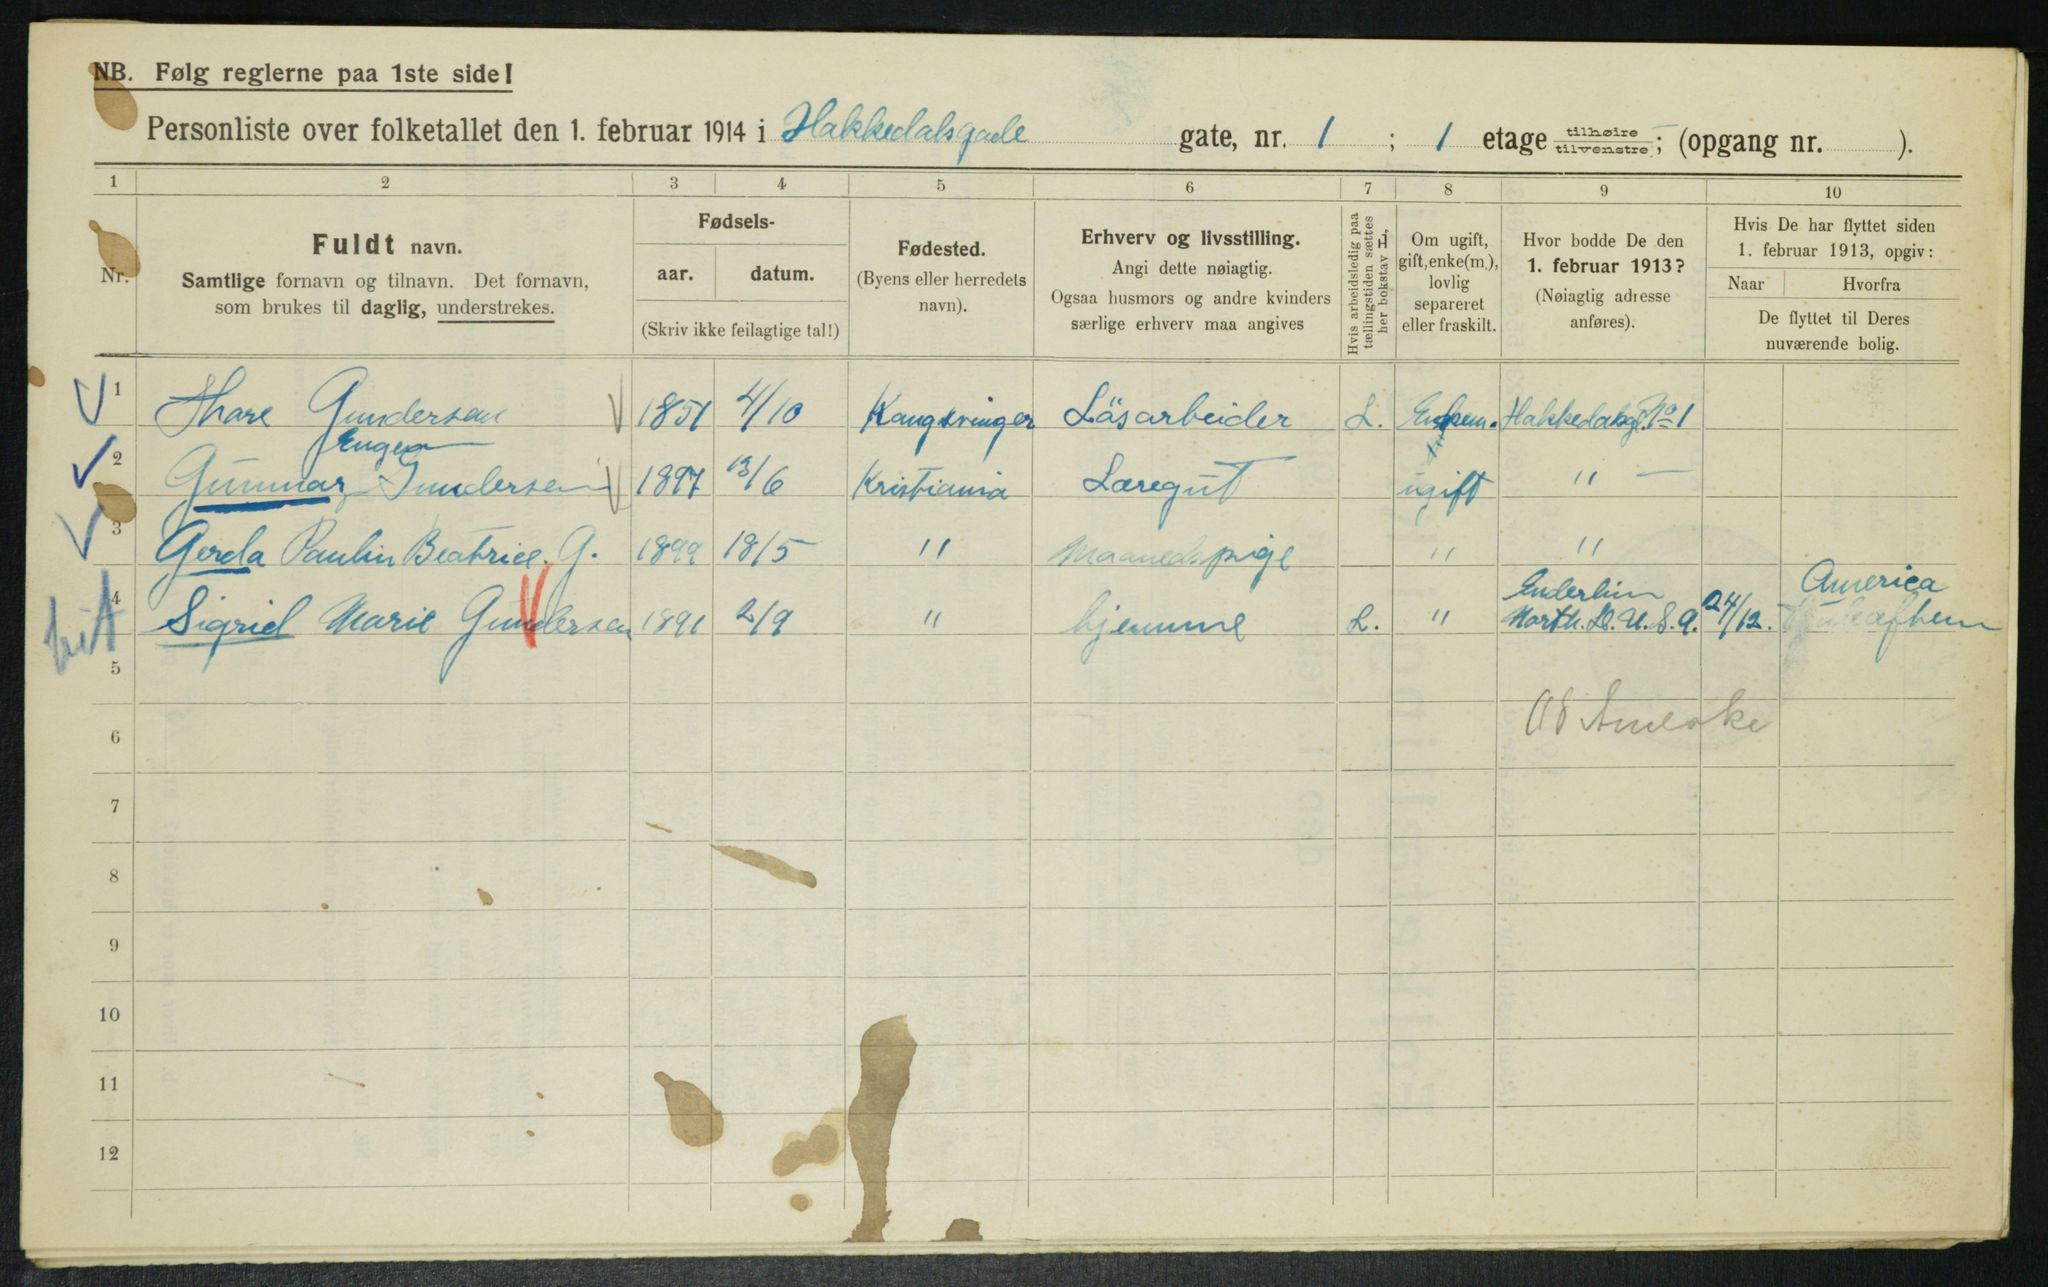 NB. Følg reglerne paa 1ste side!
Personliste over folketallet den 1. februar 1914 i Hakkedalsgade gate, nr. 1 ; 1 etage tilhøire tilvenstre ; (opgang nr. ).
1 2 3 4 5 6 7 8 9 10
Nr.
Fuldt navn.
Samtlige fornavn og tilnavn. Det fornavn,
som brukes til daglig, understrekes.
Fødsels-
aar. datum.
(Skriv ikke feilagtige tal!)
Fødested.
(Byens eller herredets
navn).
Erhverv og livsstilling.
Angi dette nøiagtig.
Ogsaa husmors og andre kvinders
særlige erhverv maa angives
Hvis arbeidsledig paa
tællingstiden sættes
her bokstav L.
Om ugift,
gift, enke(m.),
lovlig
separeret
eller fraskilt.
Hvor bodde De den
1. februar 1913?
(Nøiagtig adresse
anføres).
Hvis De har flyttet siden
1. februar 1913, opgiv:
Naar Hvorfra
De flyttet til Deres
nuværende bolig.
1 Thore Gundersen 1851 4/10 Kongsvinger Løsarbeider L. Enkem. Hakkedalsg. No 1
Eugen
2 Gunnar Gundersen 1897 13/6 Kristiania Læregut ugift " —
3 Gerda Paulin Beatrice. G. 1899 18/5 " Maanedspige " "
Enderlin America
4 Sigrid Marie Gundersen 1891 2/9 " hjemme L. " North. D. U. S. A. 24/12.
5
6
7
8
9
10
11
12